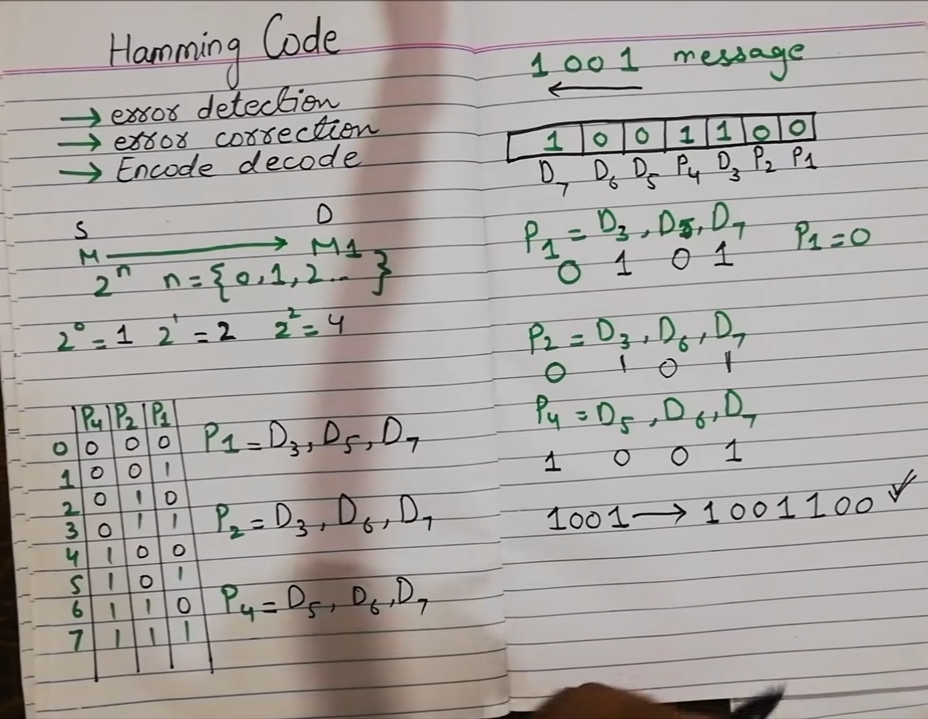 Hamming Code
→ error detection
→ error correction
→ Encode decode
S D
M → M1
2ⁿ n = {0,1,2... }
2⁰ = 1 2¹ = 2 2² = 4
P4 P2 P1
0 0 0 0
1 0 0 1
2 0 1 0
3 0 1 1
4 1 0 0
5 1 0 1
6 1 1 0
7 1 1 1
P1 = D3, D5, D7
P2 = D3, D6, D7
P4 = D5, D6, D7
1001 message
←
1 0 0 1 1 0 0
D7 D6 D5 P4 D3 P2 P1
P1 = D3, D5, D7 P1 = 0
0 1 0 1
P2 = D3, D6, D7
0 1 0 1
P4 = D5, D6, D7
1 0 0 1
1001 → 1001100 ✓